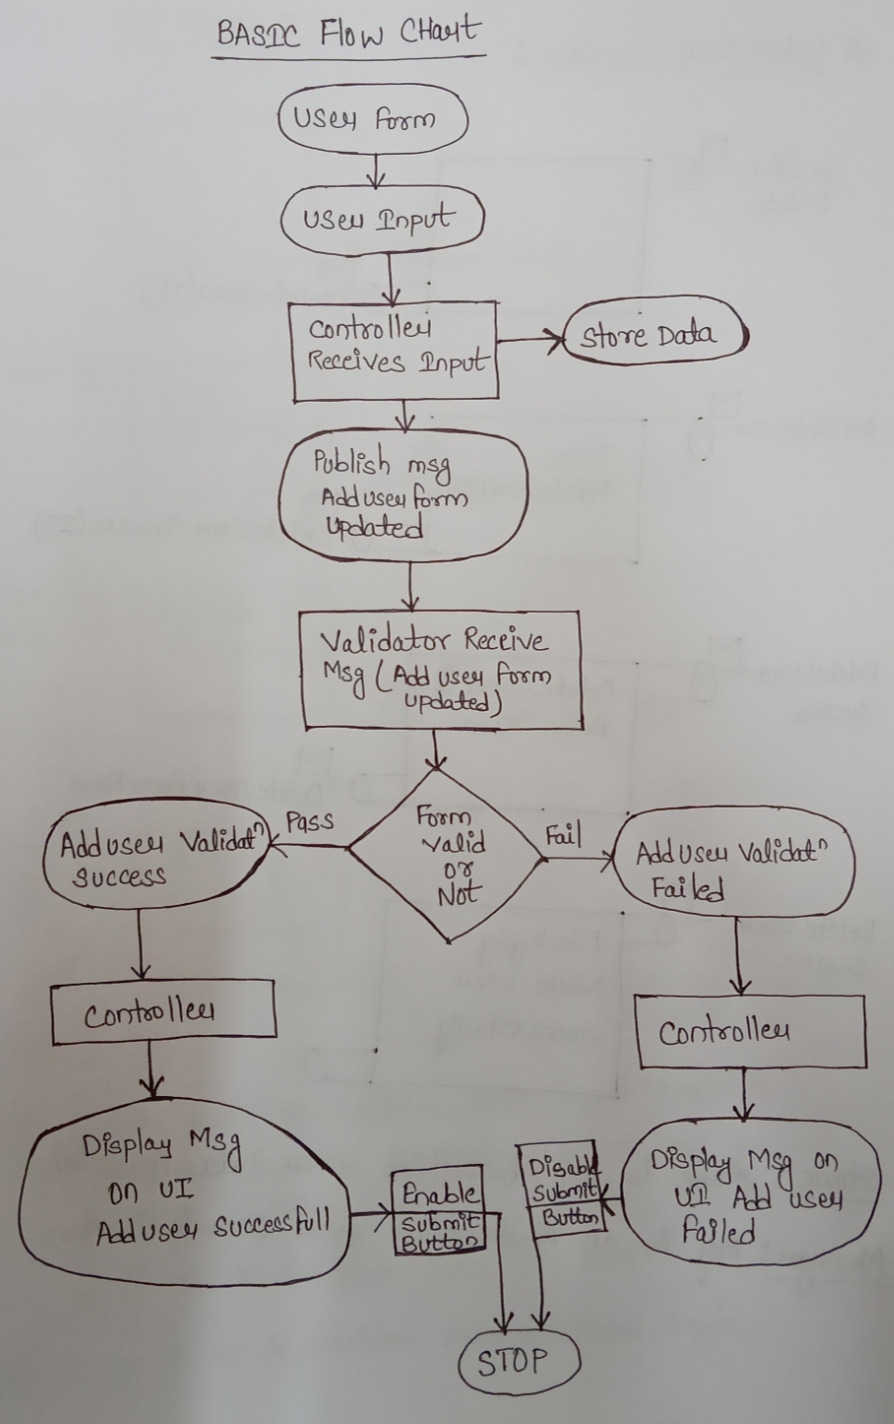 BASIC FLOW CHart
User form
User Input
Controller
Receives Input
Store Data
Publish msg
Add user form
Updated
Validator Receive
Msg (Add user form
updated)
Form
Valid
or
Not
Pass
Fail
Add user Validatⁿ
Success
Add User Validatⁿ
Failed
Controller
Controller
Display Msg
on UI
Add user Successfull
Enable
Submit
Button
Disable
Submit
Button
Display Msg on
UI Add user
failed
STOP